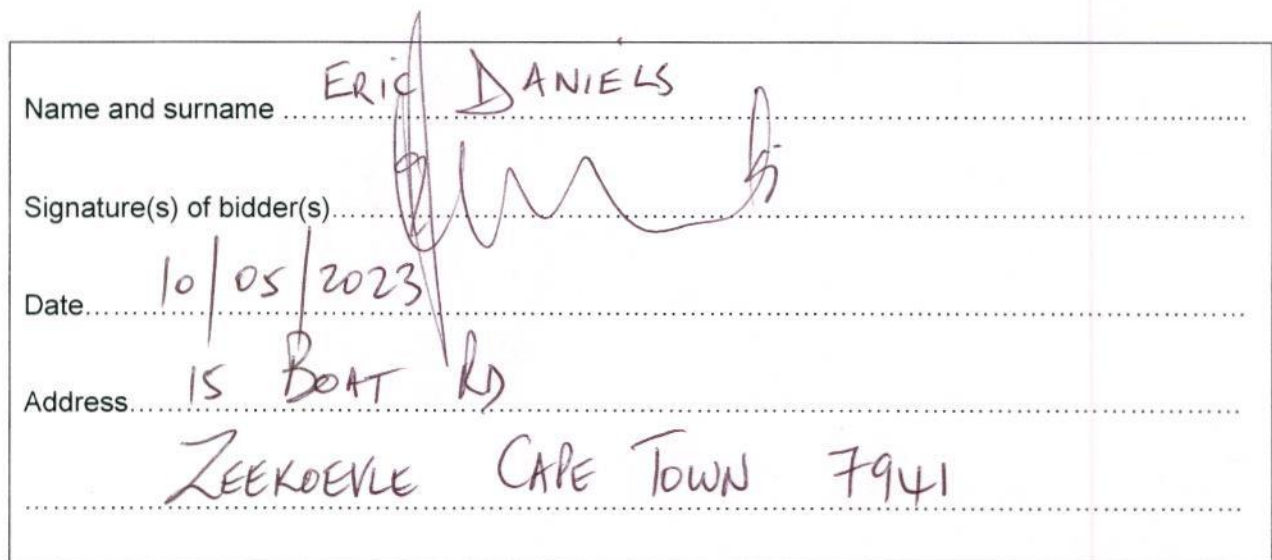 Name and surname ERIC DANIELS
Signature(s) of bidder(s)
Date 10/05/2023
Address 15 BOAT RD
ZEEKOEVLE CAPE TOWN 7941